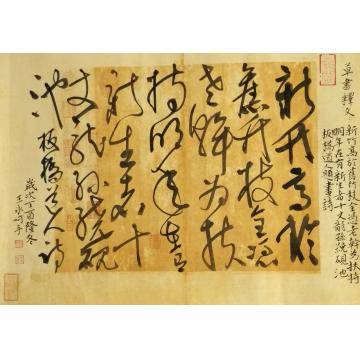 草書釋文
新竹高於舊枝全憑老幹為扶持
明年在有新生者十丈龍孫繞硯池
板橋道人題畫詩
新竹高於
舊竹枝全憑
老幹為扶
持明年在有
新生者十
丈龍孫繞
池 板橋道人詩
歲次丁酉隆冬